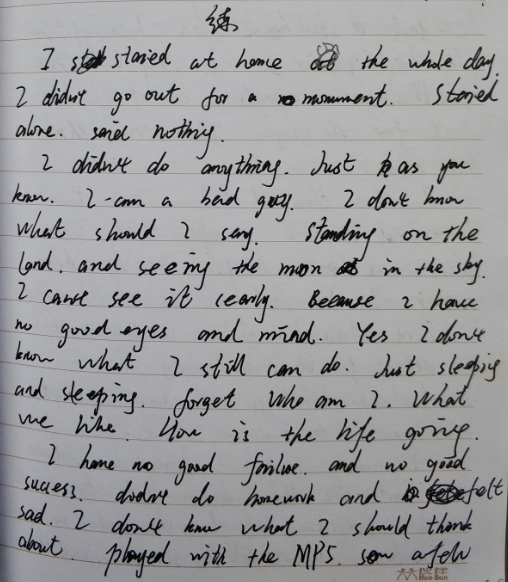 练
I staied at home the whole day.
I didn't go out for a monument. Staied
alone. said nothing.
I didn't do anything. Just as you
know. I am a bad guy. I don't know
what should I say. Standing on the
land. and seeing the moon in the sky.
I can't see it cearly. Because I have
no good eyes and mind. Yes I don't
know what I still can do. Just sleeping
and sleeping. forget who am I. What
me like. How is the life going.
I have no good failue. and no good
success. didn't do homework and felt
sad. I don't know what I should thank
about. played with the MP5. saw a few